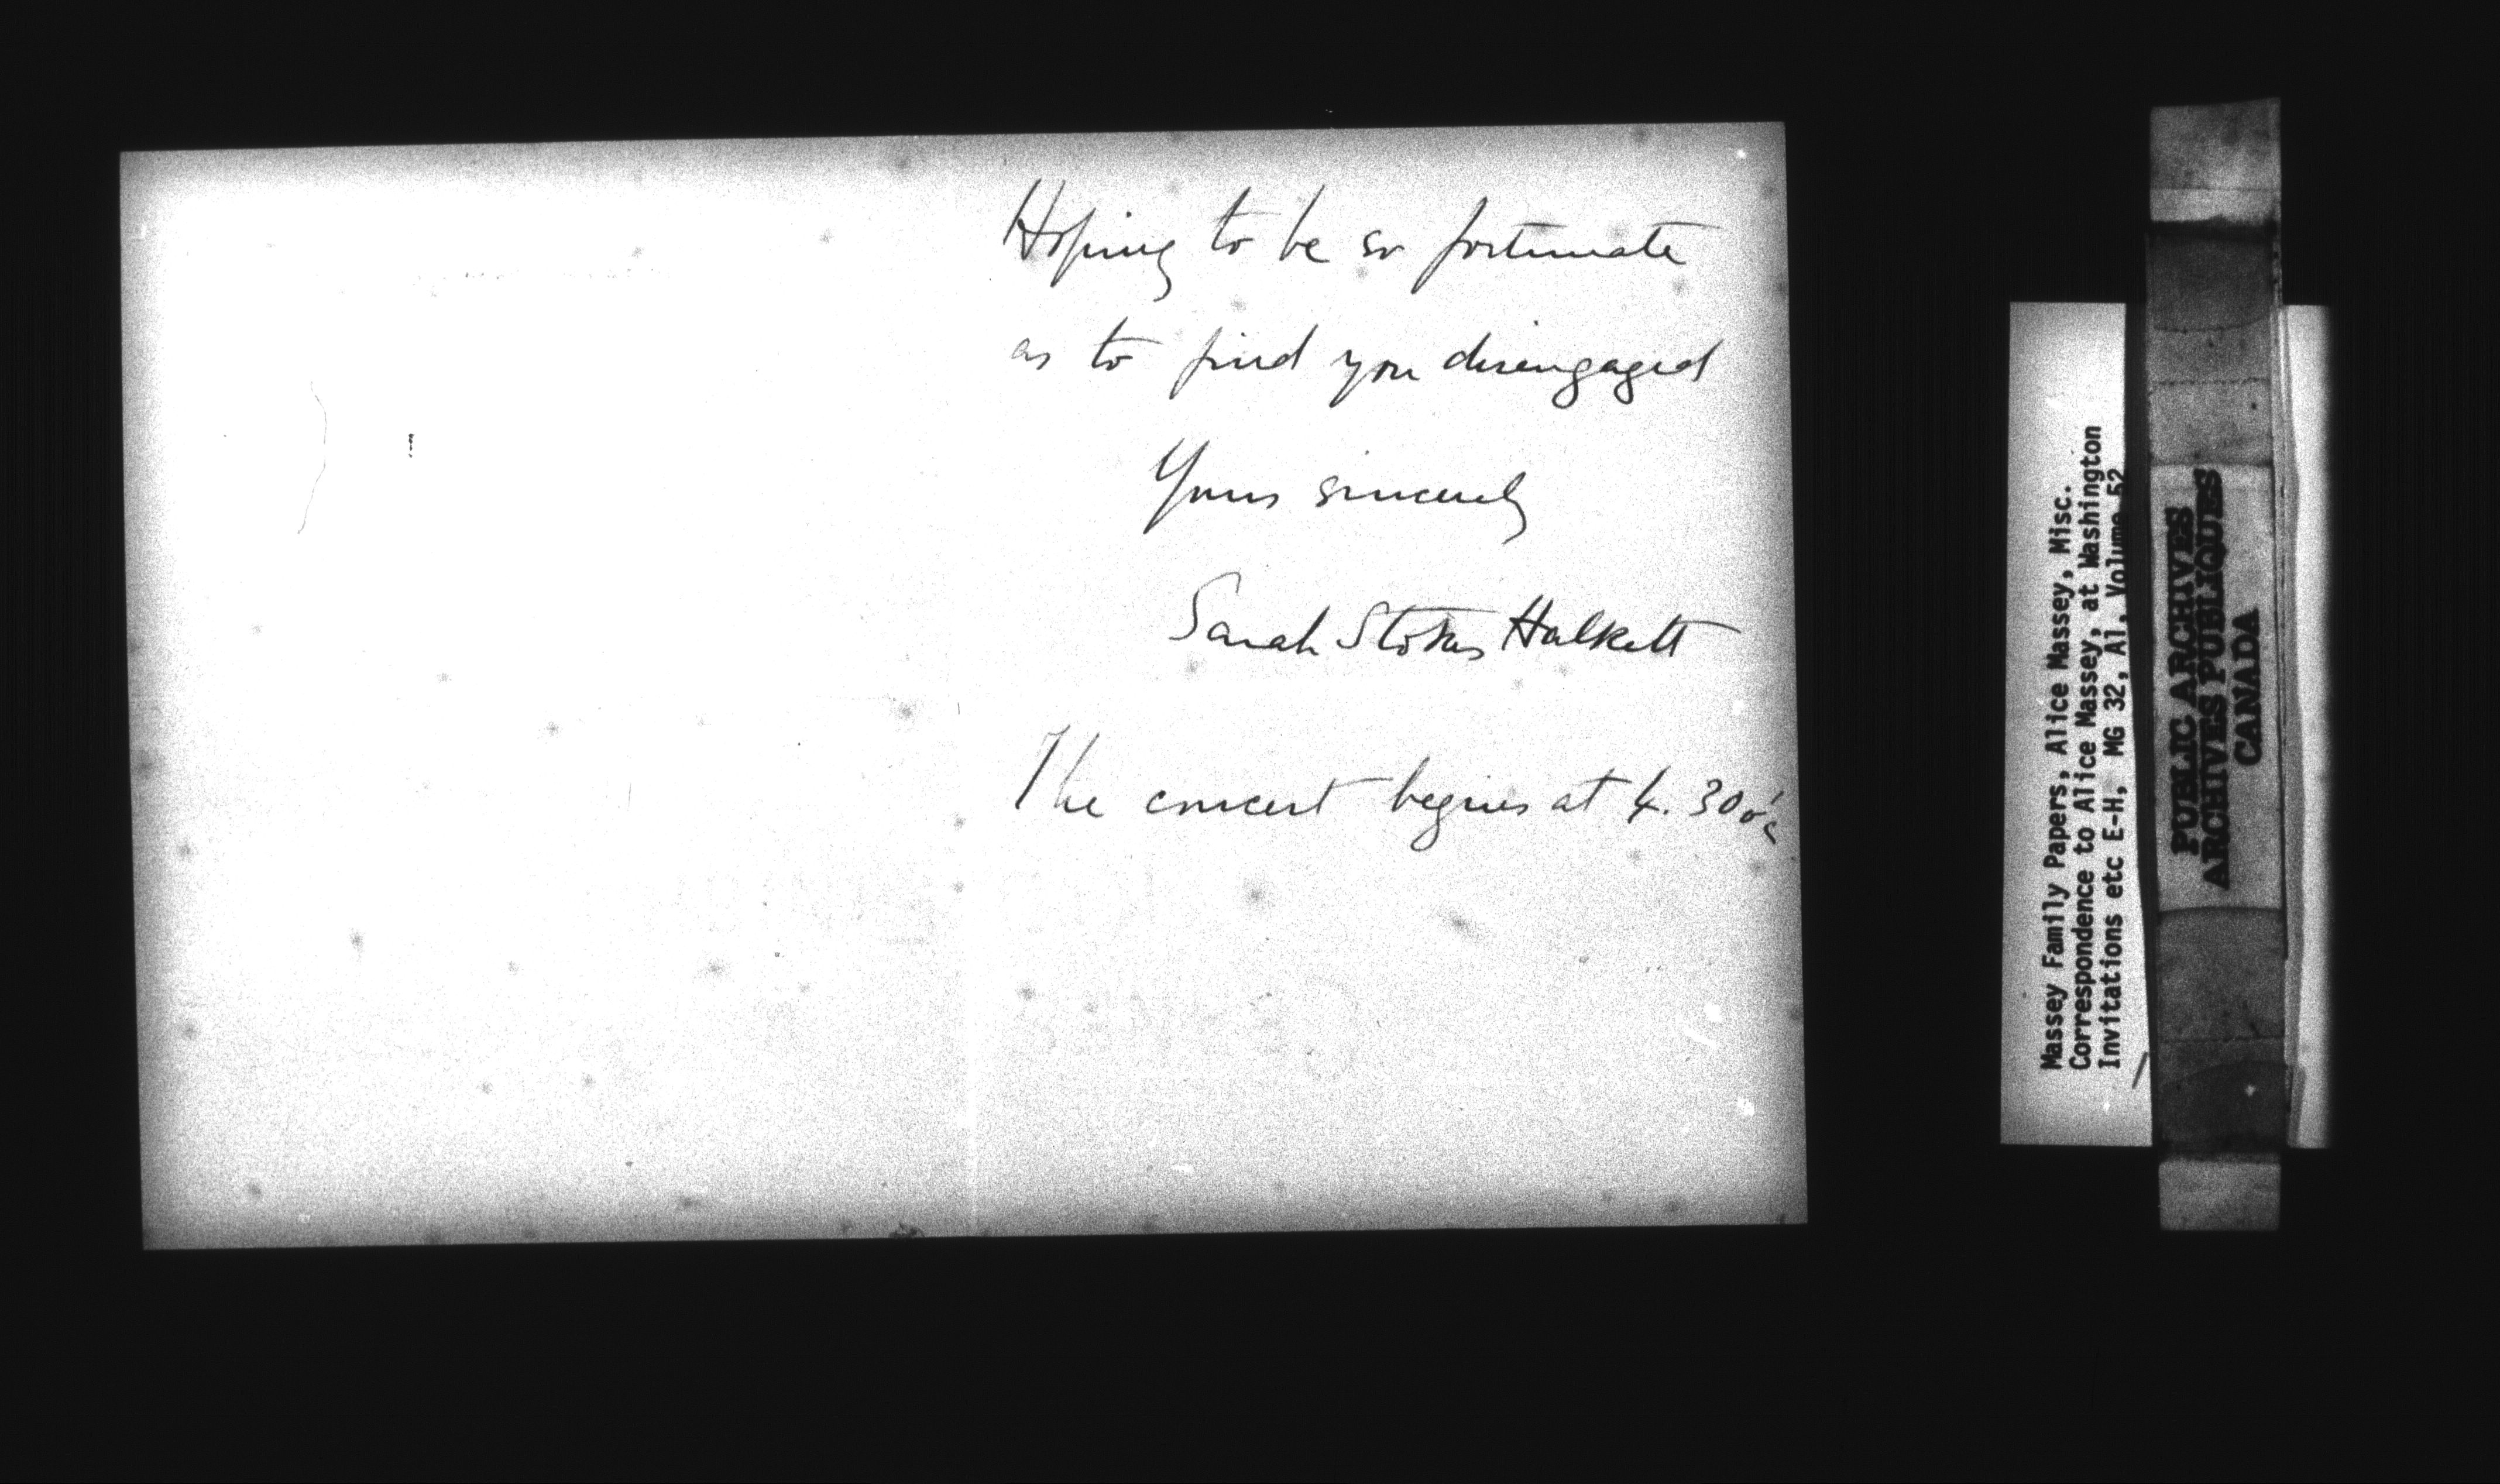 Hoping to be so fortunate
as to find you disengaged
Yours sincerely
Sarah Stokes Halkett
The concert begins at 4.30 o'c
Massey Family Papers, Alice Massey, Misc.
Correspondence to Alice Massey, at Washington
Invitations etc E-H, MG 32, A1, Volume 52
PUBLIC ARCHIVES
ARCHIVES PUBLIQUES
CANADA